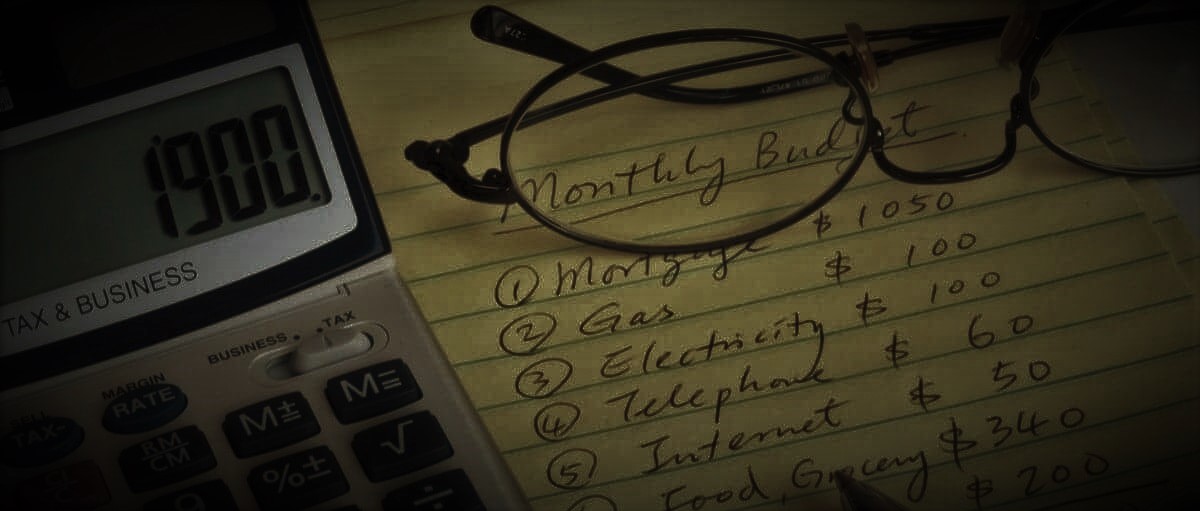 1900.
TAX & BUSINESS
BUSINESS . . TAX
MARGIN
RATE
TAX-
M±
M=
RM
CM
%±
√
÷
Monthly Budget
① Mortgage $ 1050
② Gas $ 100
③ Electricity $ 100
④ Telephone $ 60
⑤ Internet $ 50
Food, Grocery $ 340
$ 200